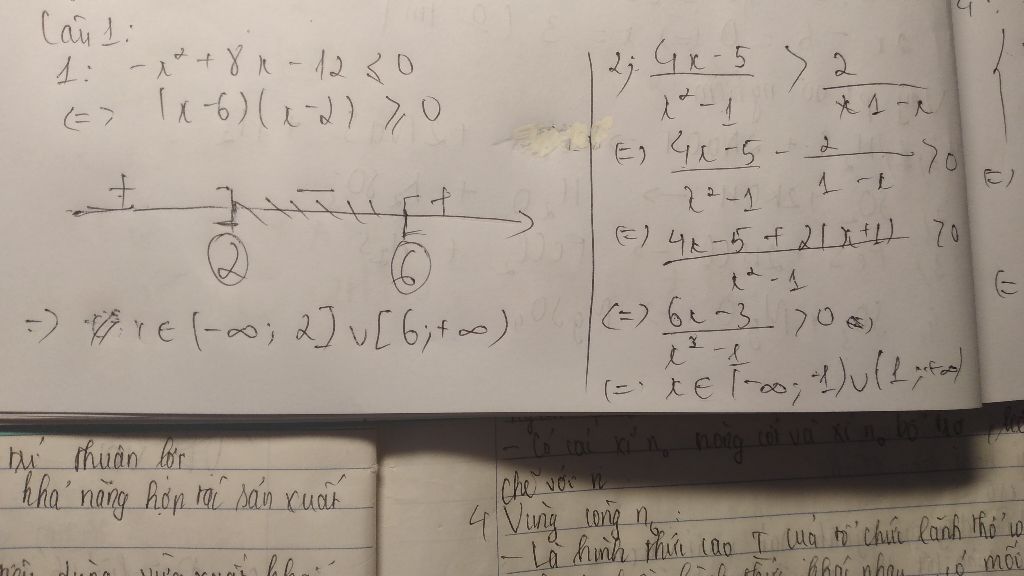 Câu 1:
1: -x² + 8x - 12 ≤ 0
<=> (x-6)(x-2) ≥ 0
+ ] - [ +
2 6
=> x ∈ (-∞; 2] ∪ [6; +∞)
2; (4x-5)/(x²-1) > 2/(1-x)
<=> (4x-5)/(x²-1) - 2/(1-x) > 0
<=> (4x-5+2(x+1))/(x²-1) > 0
<=> (6x-3)/(x²-1) > 0 <=>
<=> x ∈ (-∞; -1) ∪ (1; +∞)
4
<=>
thuận lợi
khả năng hợp tại sản xuất
- Có các xí n. nòng cốt và xí n. bổ trợ
chẽ với n
4 Vùng công n.:
- Là hình thức cao I của tổ chức lãnh thổ